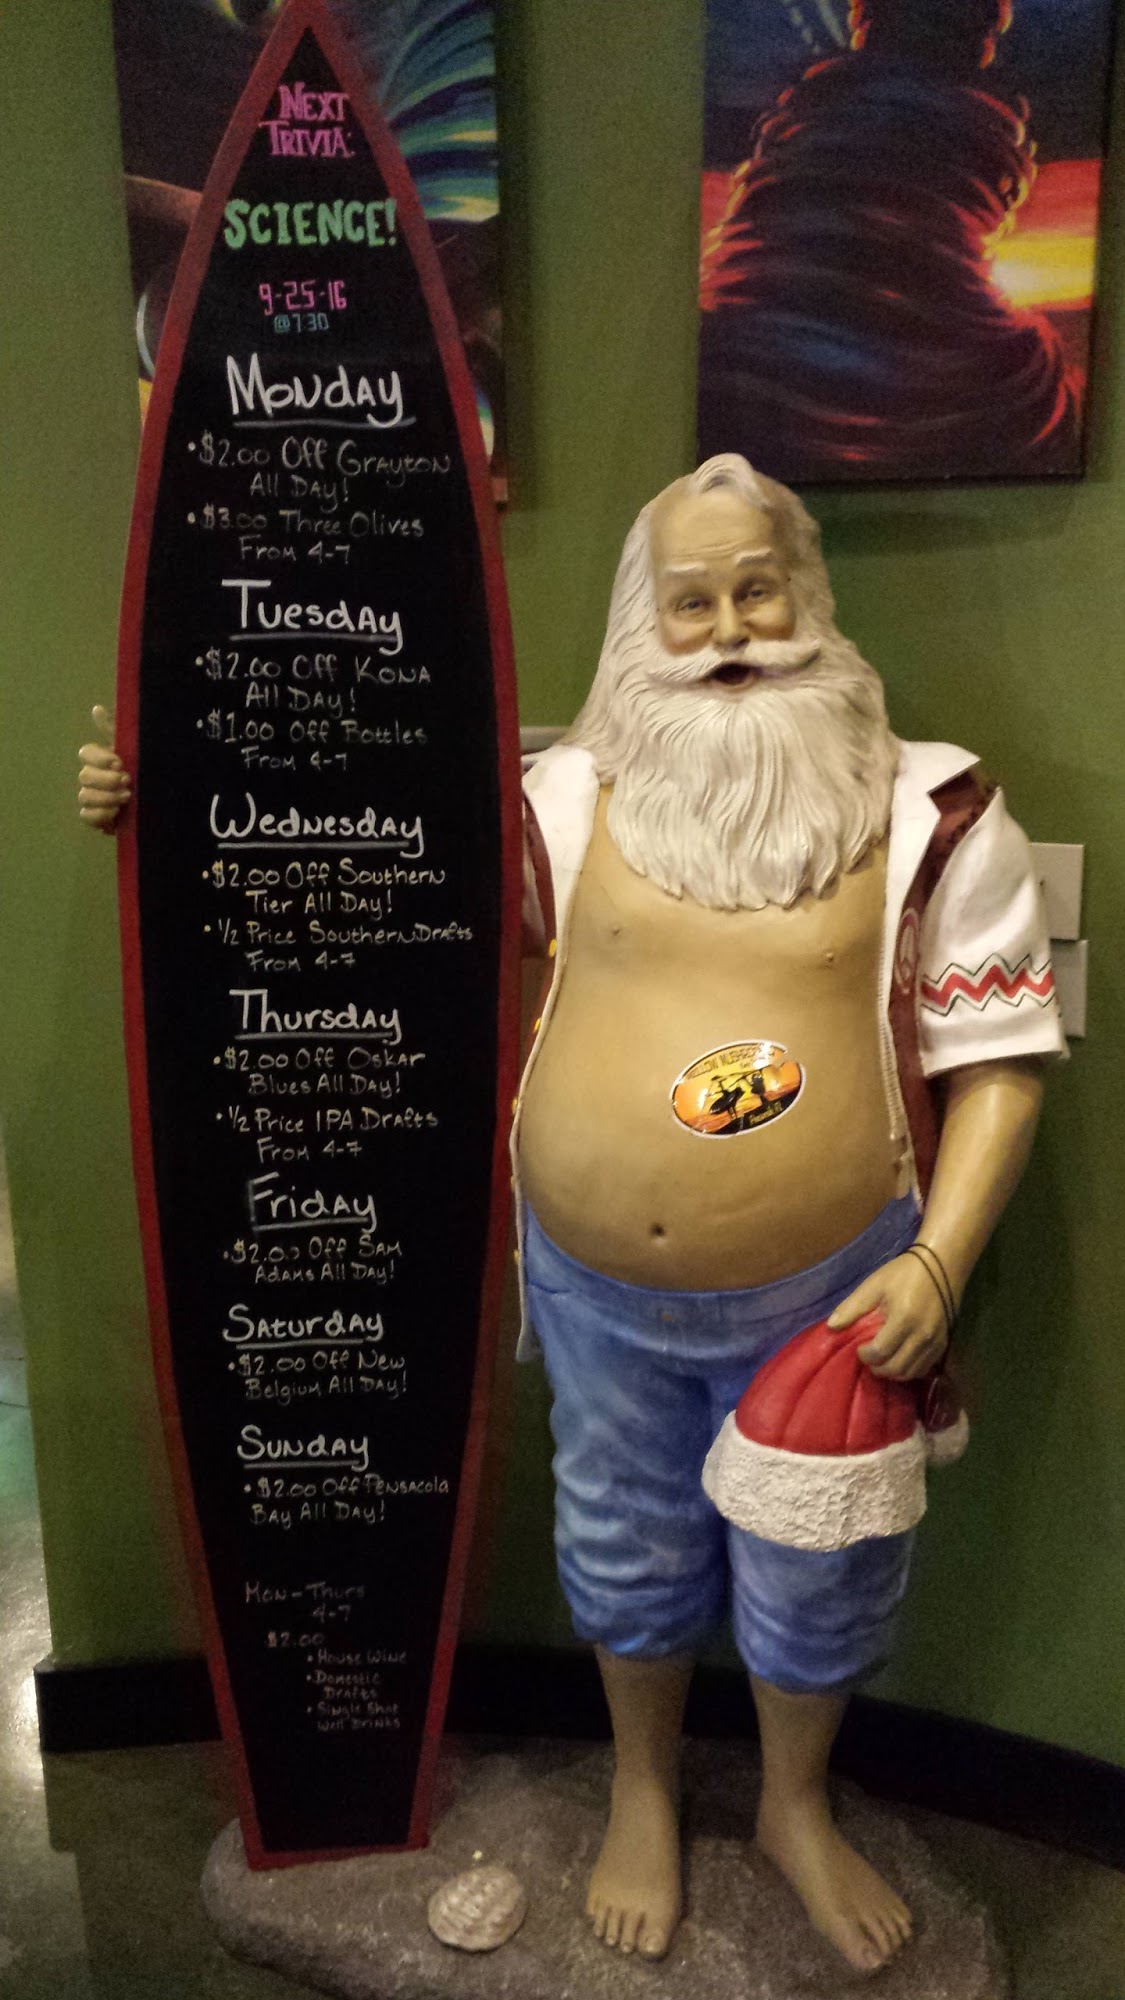 Next
Trivia:
Science!
9-25-16
@7:30
Monday
• $2.00 Off Grayton
All Day!
• $3.00 Three Olives
From 4-7
Tuesday
• $2.00 Off Kona
All Day!
• $1.00 Off Bottles
From 4-7
Wednesday
• $2.00 Off Southern
Tier All Day!
• 1/2 Price Southern Drafts
From 4-7
Thursday
• $2.00 Off Oskar
Blues All Day!
• 1/2 Price IPA Drafts
From 4-7
Friday
• $2.00 Off Sam
Adams All Day!
Saturday
• $2.00 Off New
Belgium All Day!
Sunday
• $2.00 Off Pensacola
Bay All Day!
Mon-Thurs
4-7
$2.00
• House Wine
• Domestic
Drafts
• Single Shot
Well Drinks
Mellow Mushroom
Pensacola, FL